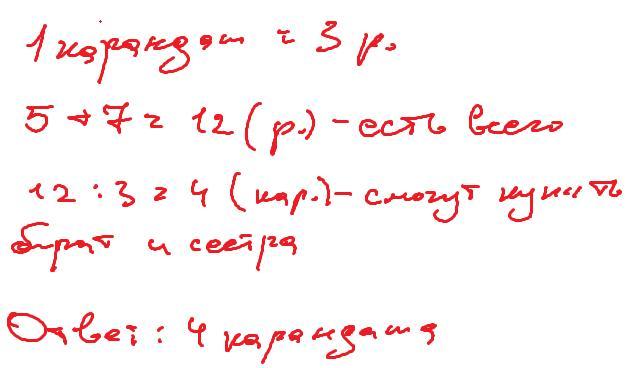 1 карандаш = 3 р.
5 + 7 = 12 (р.) - есть всего
12 : 3 = 4 (кар.) - смогут купить
брат и сестра
Ответ: 4 карандаша